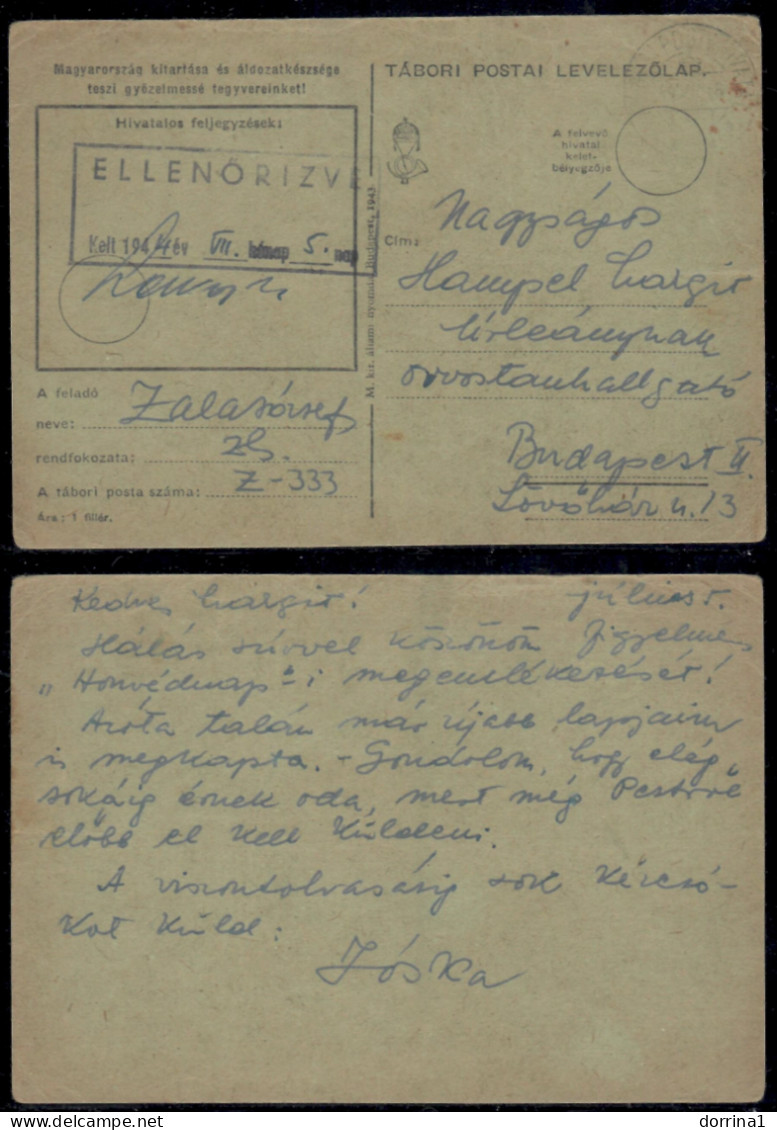 Magyarország kitartása és áldozatkészsége
teszi győzelmessé fegyvereinket!
Hivatalos feljegyzések:
ELLENŐRIZVE
Kelt 1944 év VII. hónap 5. nap
A feladó
neve: Zala József
rendfokozata: zls.
A tábori posta száma: Z-333
Ára: 1 fillér.
M. kir. állami nyomda, Budapest, 1943.
TÁBORI POSTAI LEVELEZŐLAP.
A felvevő
hivatal
kelet-
bélyegzője
Cím:
Nagyságos
Hampel Margit
Úrleánynak
orvostanhallgató
Budapest II.
Lövőház u. 13
Kedves Margit! július 5.
Hálás szívvel köszönöm figyelmes
„Honvédnap"-i megemlékezését!
Azóta talán már újabb lapjaim
is megkapta. - Gondolom, hogy elég
sokáig érnek oda, mert még Pestre
előbb el kell küldeni.
A viszontolvasásig sok kézcsó-
kot küld:
Jóska
dorrina1